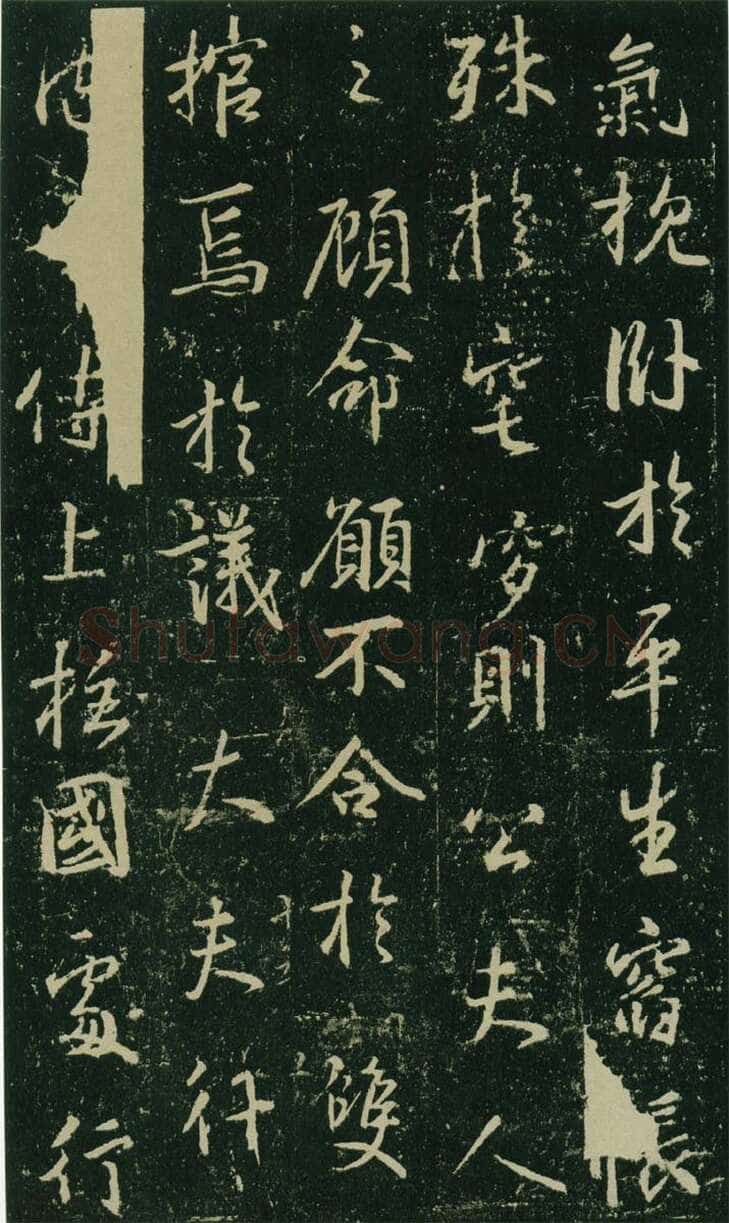 氣附於平生帳
殊於窀穸則公夫人
之顧命願不合於雙
棺焉於議大夫行
侍上柱國處行
Shufawang.CN